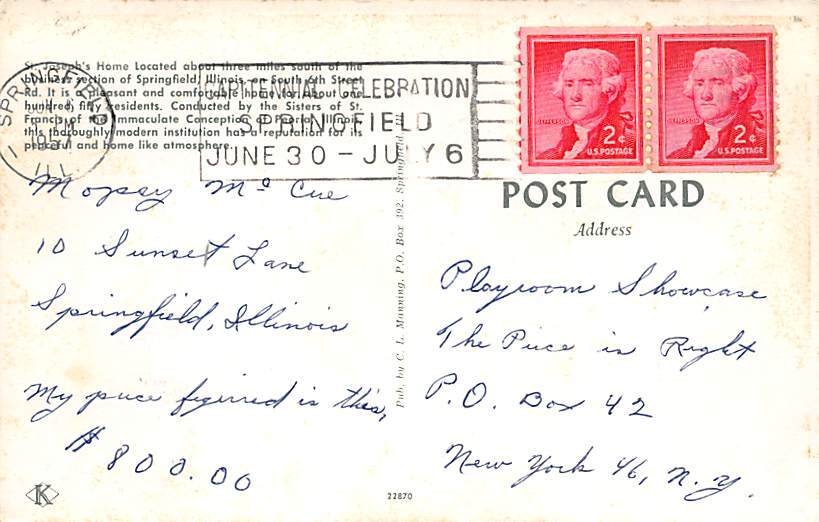 St. Joseph's Home Located about three miles south of the
business section of Springfield, Illinois, on South 6th Street
Rd. It is a pleasant and comfortable home for about one
hundred fifty residents. Conducted by the Sisters of St.
Francis of the Immaculate Conception of Peoria, Illinois,
this thoroughly modern institution has a reputation for its
peaceful and home like atmosphere.
SPRINGFIELD
PM
1957
ILL
CENTENNIAL CELEBRATION
SPRINGFIELD
JUNE 30 - JULY 6
JEFFERSON
2¢
U.S. POSTAGE
JEFFERSON
2¢
U.S. POSTAGE
Mopsy McCue
10 Sunset Lane
Springfield, Illinois
My price figured is this,
$800.00
K
Pub. by C. L. Manning, P.O. Box 392, Springfield, Ill.
22870
POST CARD
Address
Playroom Showcase
The Price is Right
P.O. Box 42
New York 46, N.Y.